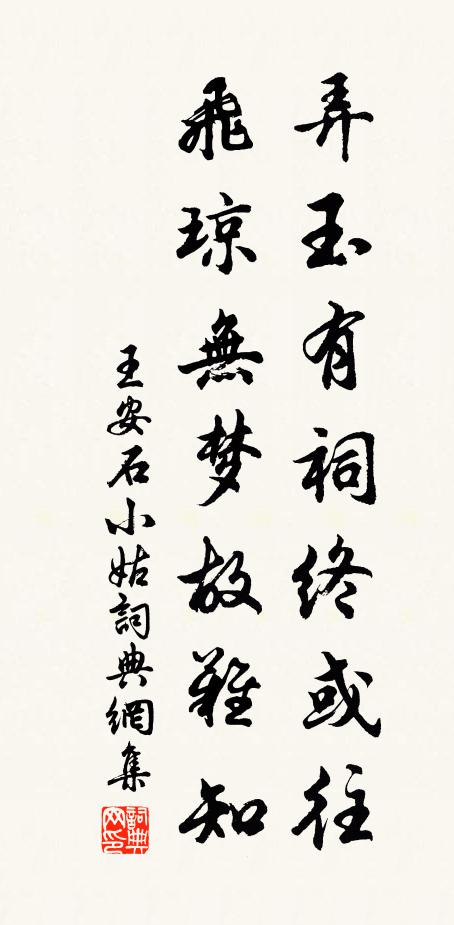 弄玉有祠终或往
飛琼無梦故難知
王安石小姑詞典網集
詞典网印